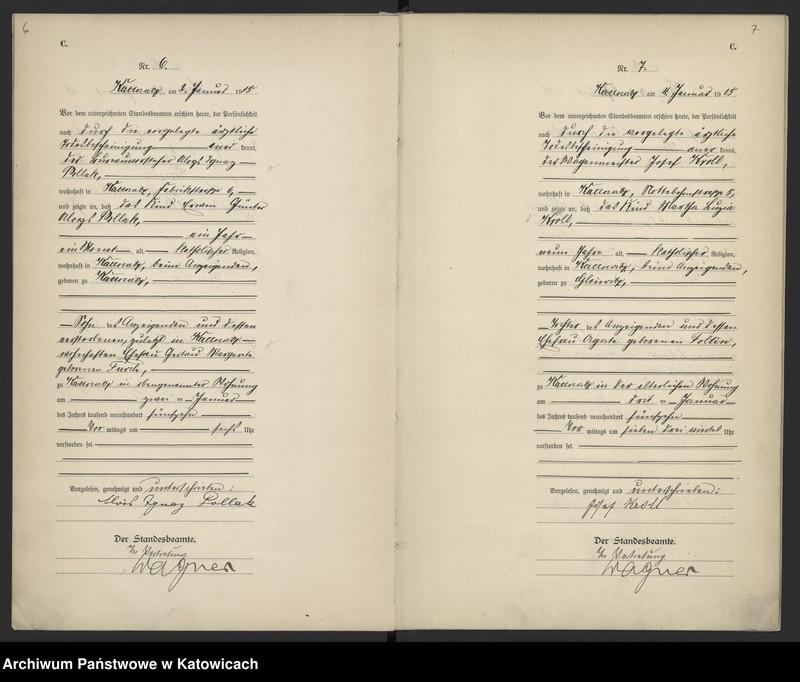 6
C.
Nr. 6.
Kattowitz am 2. Januar 1915.
Vor dem unterzeichneten Standesbeamten erschien heute, der Persönlichkeit
nach durch die vorgelegte ärztliche
Todesbescheinigung anerkannt,
der Alois Ignaz
Pollak,
wohnhaft in Kattowitz, 
und zeigte an, daß das Kind Erwin Günter
Aloys Pollak,
ein Jahr
ein Monat alt, katholischer Religion,
wohnhaft in Kattowitz, beim Anzeigenden,
geboren zu Kattowitz,
Sohn des Anzeigenden und dessen
verstorbenen, zuletzt in Kattowitz
wohnhaften Ehefrau Gertrud Margarete
geborenen
zu Kattowitz in obengenannter Wohnung
am zwei ten Januar
des Jahres tausend neunhundert fünfzehn
Vor mittags um sechs Uhr
verstorben sei.
Vorgelesen, genehmigt und unterschrieben:
Alois Ignaz Pollak
Der Standesbeamte.
In Vertretung
Wagner
7
C.
Nr. 7.
Kattowitz am 4. Januar 1915.
Vor dem unterzeichneten Standesbeamten erschien heute, der Persönlichkeit
nach durch die vorgelegte ärztliche
Todesbescheinigung anerkannt,
der Wagenmeister Josef Kroll,
wohnhaft in Kattowitz,
und zeigte an, daß das Kind Martha Luzia
Kroll,
neun Jahre alt, katholischer Religion,
wohnhaft in Kattowitz, beim Anzeigenden,
geboren zu Gleiwitz,
Tochter des Anzeigenden und dessen
Ehefrau Agate geborenen
zu Kattowitz in der elterlichen Wohnung
am drit ten Januar
des Jahres tausend neunhundert fünfzehn
Vor mittags um sieben drei viertel Uhr
verstorben sei.
Vorgelesen, genehmigt und unterschrieben:
Josef Kroll
Der Standesbeamte.
In Vertretung
Wagner
Archiwum Państwowe w Katowicach